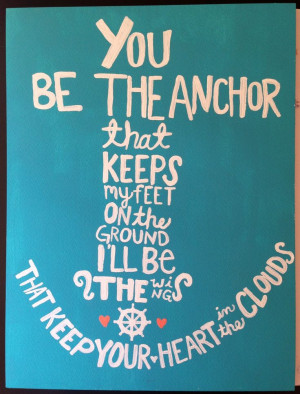 YOU
BE THE ANCHOR
that
KEEPS
my FEET
ON the
GROUND
I'LL BE
THE WiNGS
THAT KEEP YOUR HEART in the CLOUDS